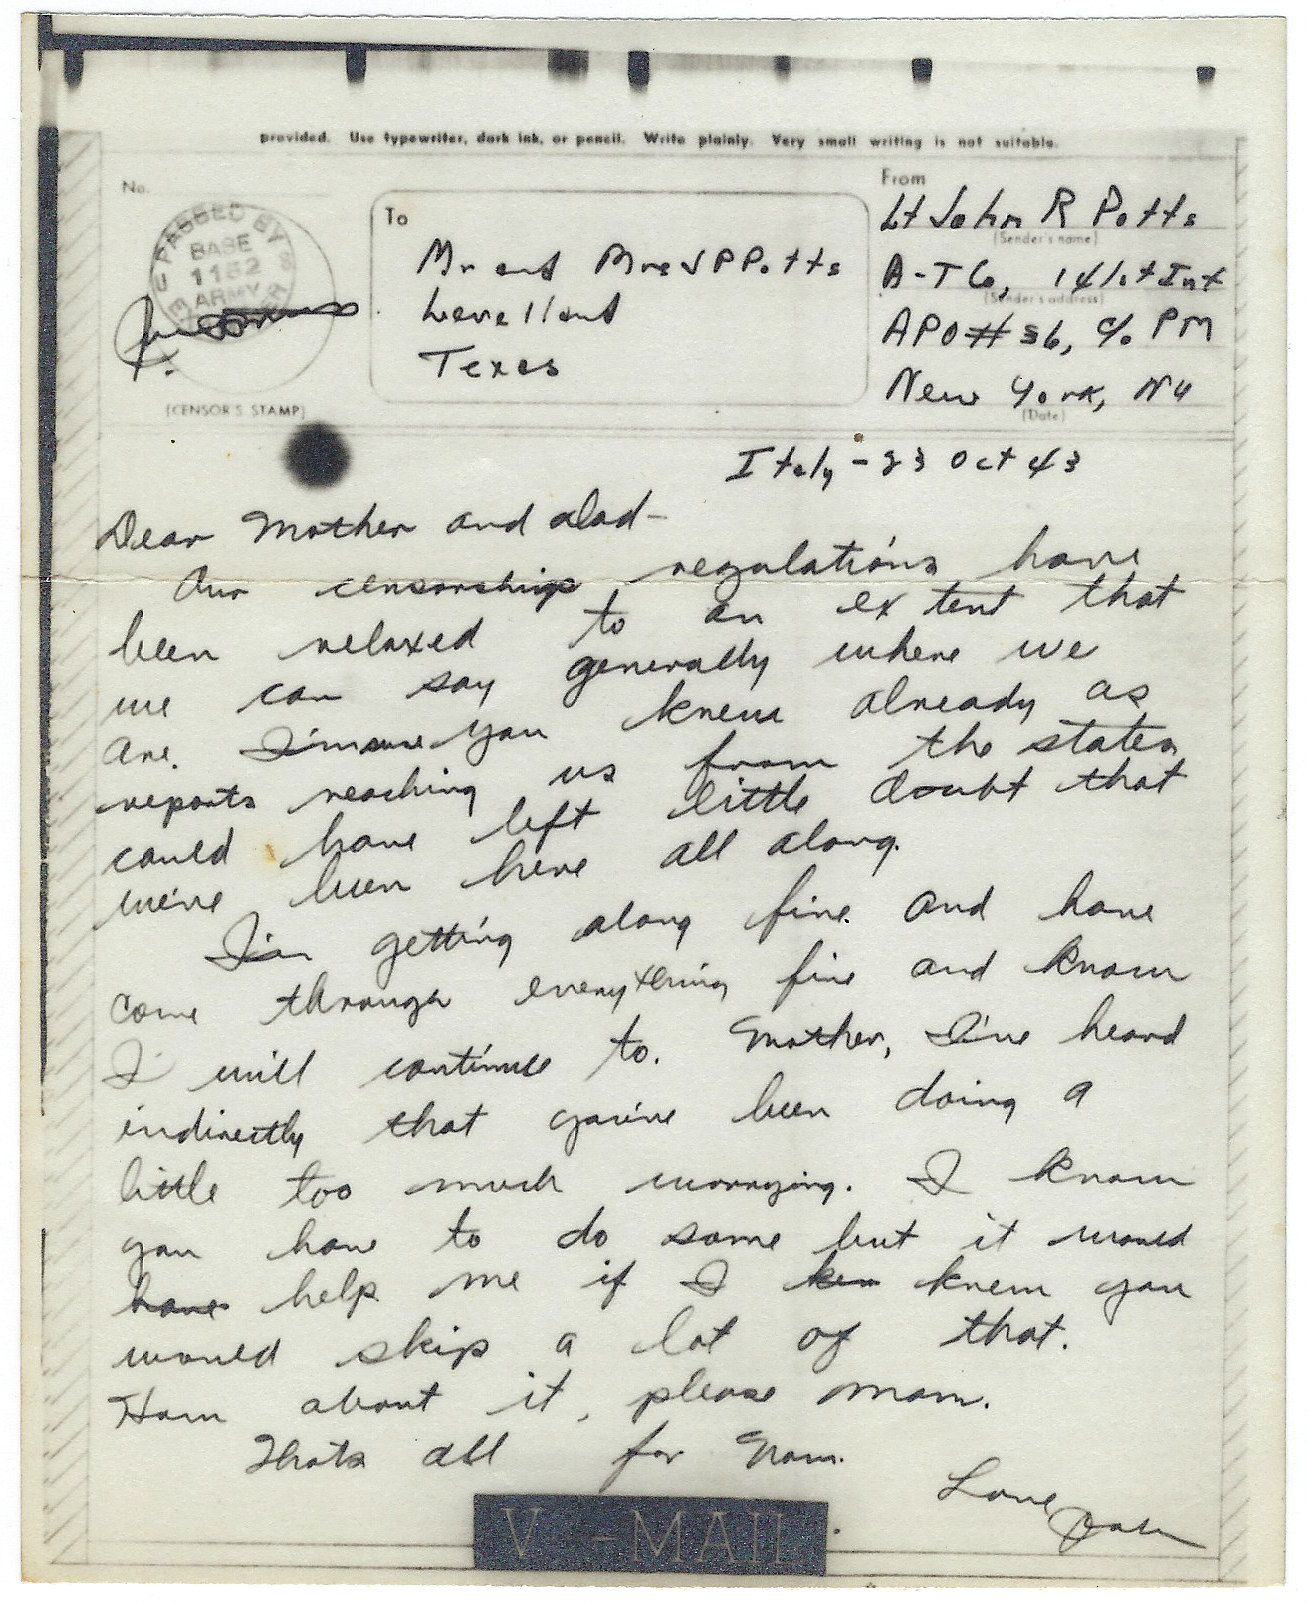 provided. Use typewriter, dark ink, or pencil. Write plainly. Very small writing is not suitable.
No.
PASSED BY
BASE
1152
ARMY
(CENSOR'S STAMP)
To
Mr and Mrs J P Potts
Levelland
Texas
From
Lt John R Potts
(Sender's name)
A-T Co, 141st Inf
(Sender's address)
APO # 36, c/o PM
New York, NY
(Date)
Italy - 23 Oct 43
Dear Mother and dad-
Our censorship regulations have
been relaxed to an extent that
we can say generally where we
are. I'm sure you knew already as
reports reaching us from the states
could have left little doubt that
we've been here all along.
I'm getting along fine and have
come through everything fine and know
I will continue to. Mother, I've heard
indirectly that you've been doing a
little too much worrying. I know
you have to do some but it would
have help me if I ken knew you
would skip a lot of that.
How about it, please mom.
Thats all for now.
Love
V-MAIL